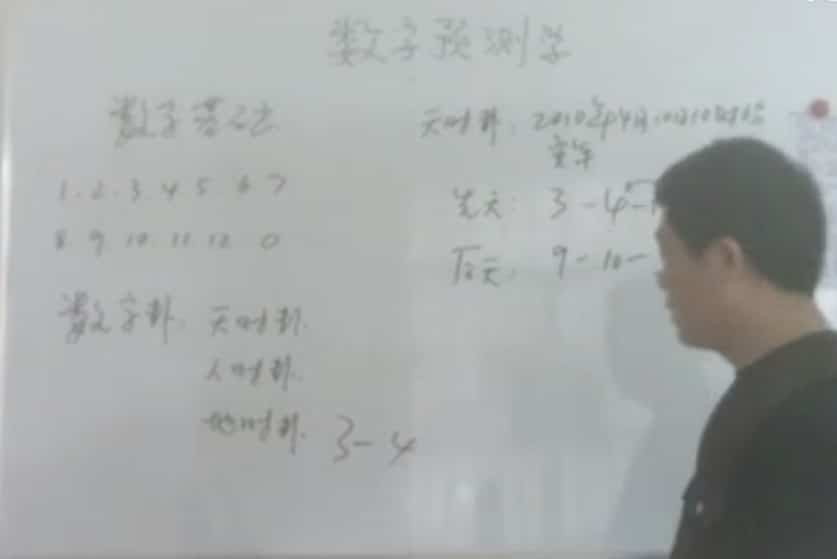 数字预测学
数字营
1.2.3.4 5.6 7
8 9 10 11 12 0
数字卦. 天时卦.
人时卦.
地时卦. 3-4
天时卦: 2010年04月10日10时
寅年
先天: 3-4-
后天: 9-10-